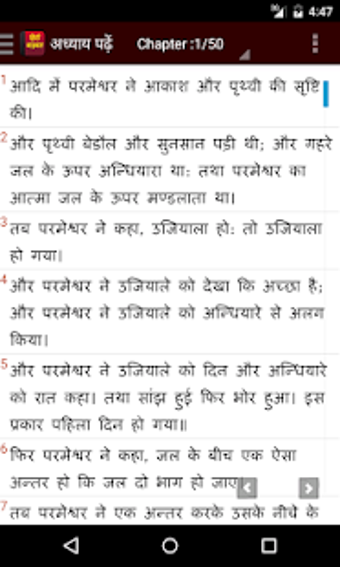 3G 4:47
हिंदी बाइबल अध्याय पढ़ें Chapter :1/50
1 आदि में परमेश्वर ने आकाश और पृथ्वी की सृष्टि
की।
2 और पृथ्वी बेडौल और सुनसान पड़ी थी; और गहरे
जल के ऊपर अन्धियारा था: तथा परमेश्वर का
आत्मा जल के ऊपर मण्डलाता था।
3 तब परमेश्वर ने कहा, उजियाला हो: तो उजियाला
हो गया।
4 और परमेश्वर ने उजियाले को देखा कि अच्छा है;
और परमेश्वर ने उजियाले को अन्धियारे से अलग
किया।
5 और परमेश्वर ने उजियाले को दिन और अन्धियारे
को रात कहा। तथा सांझ हुई फिर भोर हुआ। इस
प्रकार पहिला दिन हो गया॥
6 फिर परमेश्वर ने कहा, जल के बीच एक ऐसा
अन्तर हो कि जल दो भाग हो जाए
7 तब परमेश्वर ने एक अन्तर करके उसके नीचे के